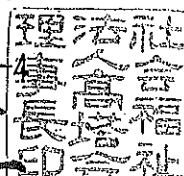 社会福祉
法人高塔会
理事長印
4